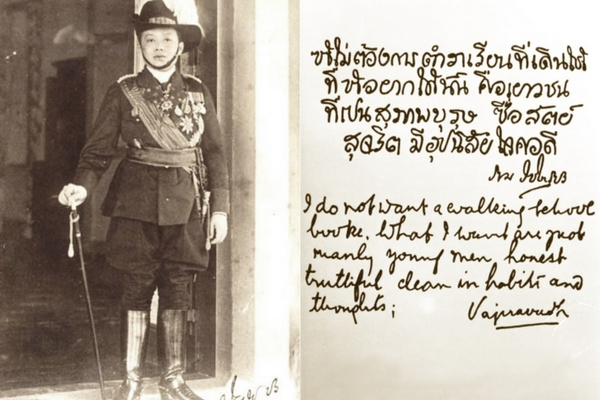 ข้าไม่ต้องการตำราเรียนที่เดินได้
ที่ข้าอยากได้นั้น คือเยาวชน
ที่เป็นสุภาพบุรุษ ซื่อสัตย์
สุจริต มีอุปนิสัยใจคอดี
I do not want a walking school
booke. What I want are just
manly young men, honest
truthful clean in habits and
thoughts; Vajiravudh